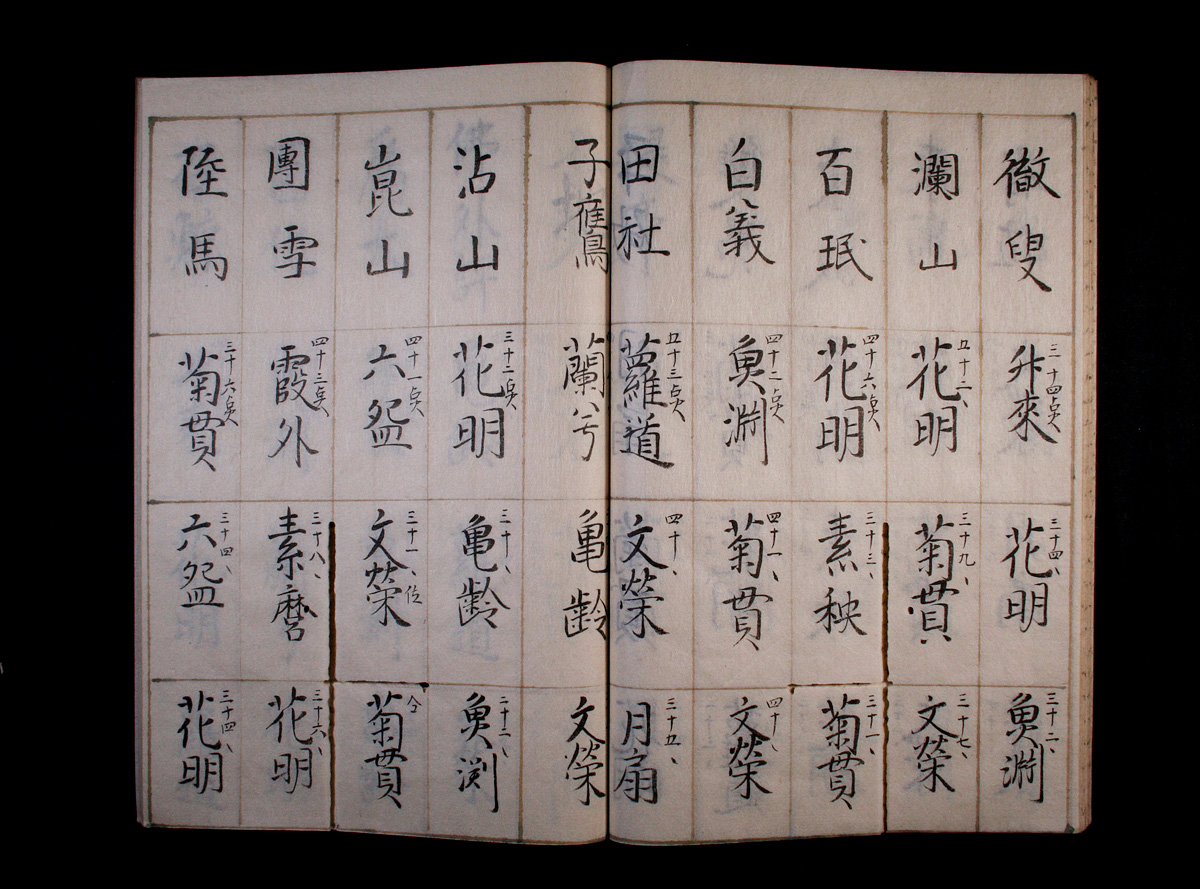 徹叟
三十四点
舛來
三十四、
花明
三十二、
魚淵
瀾山
五十二、
花明
三十九、
菊貫
三十七、
文榮
百珉
四十六点
花明
三十三、
素秧
三十一、
菊貫
白義
四十二点
魚淵
四十一、
菊貫
四十、
文榮
田社
五十三点
蘿道
四十、
文榮
三十五、
月扇
子䧹鳥
蘭兮
亀齢
文榮
沾山
三十二点
花明
三十、
亀齢
二十二、
魚渕
崑山
四十一点
六盌
三十一、位
文榮
仝
菊貫
團雪
四十三点
霞外
三十八、
素麿
三十六、
花明
陸馬
三十六点
菊貫
三十四、
六盌
三十四、
花明